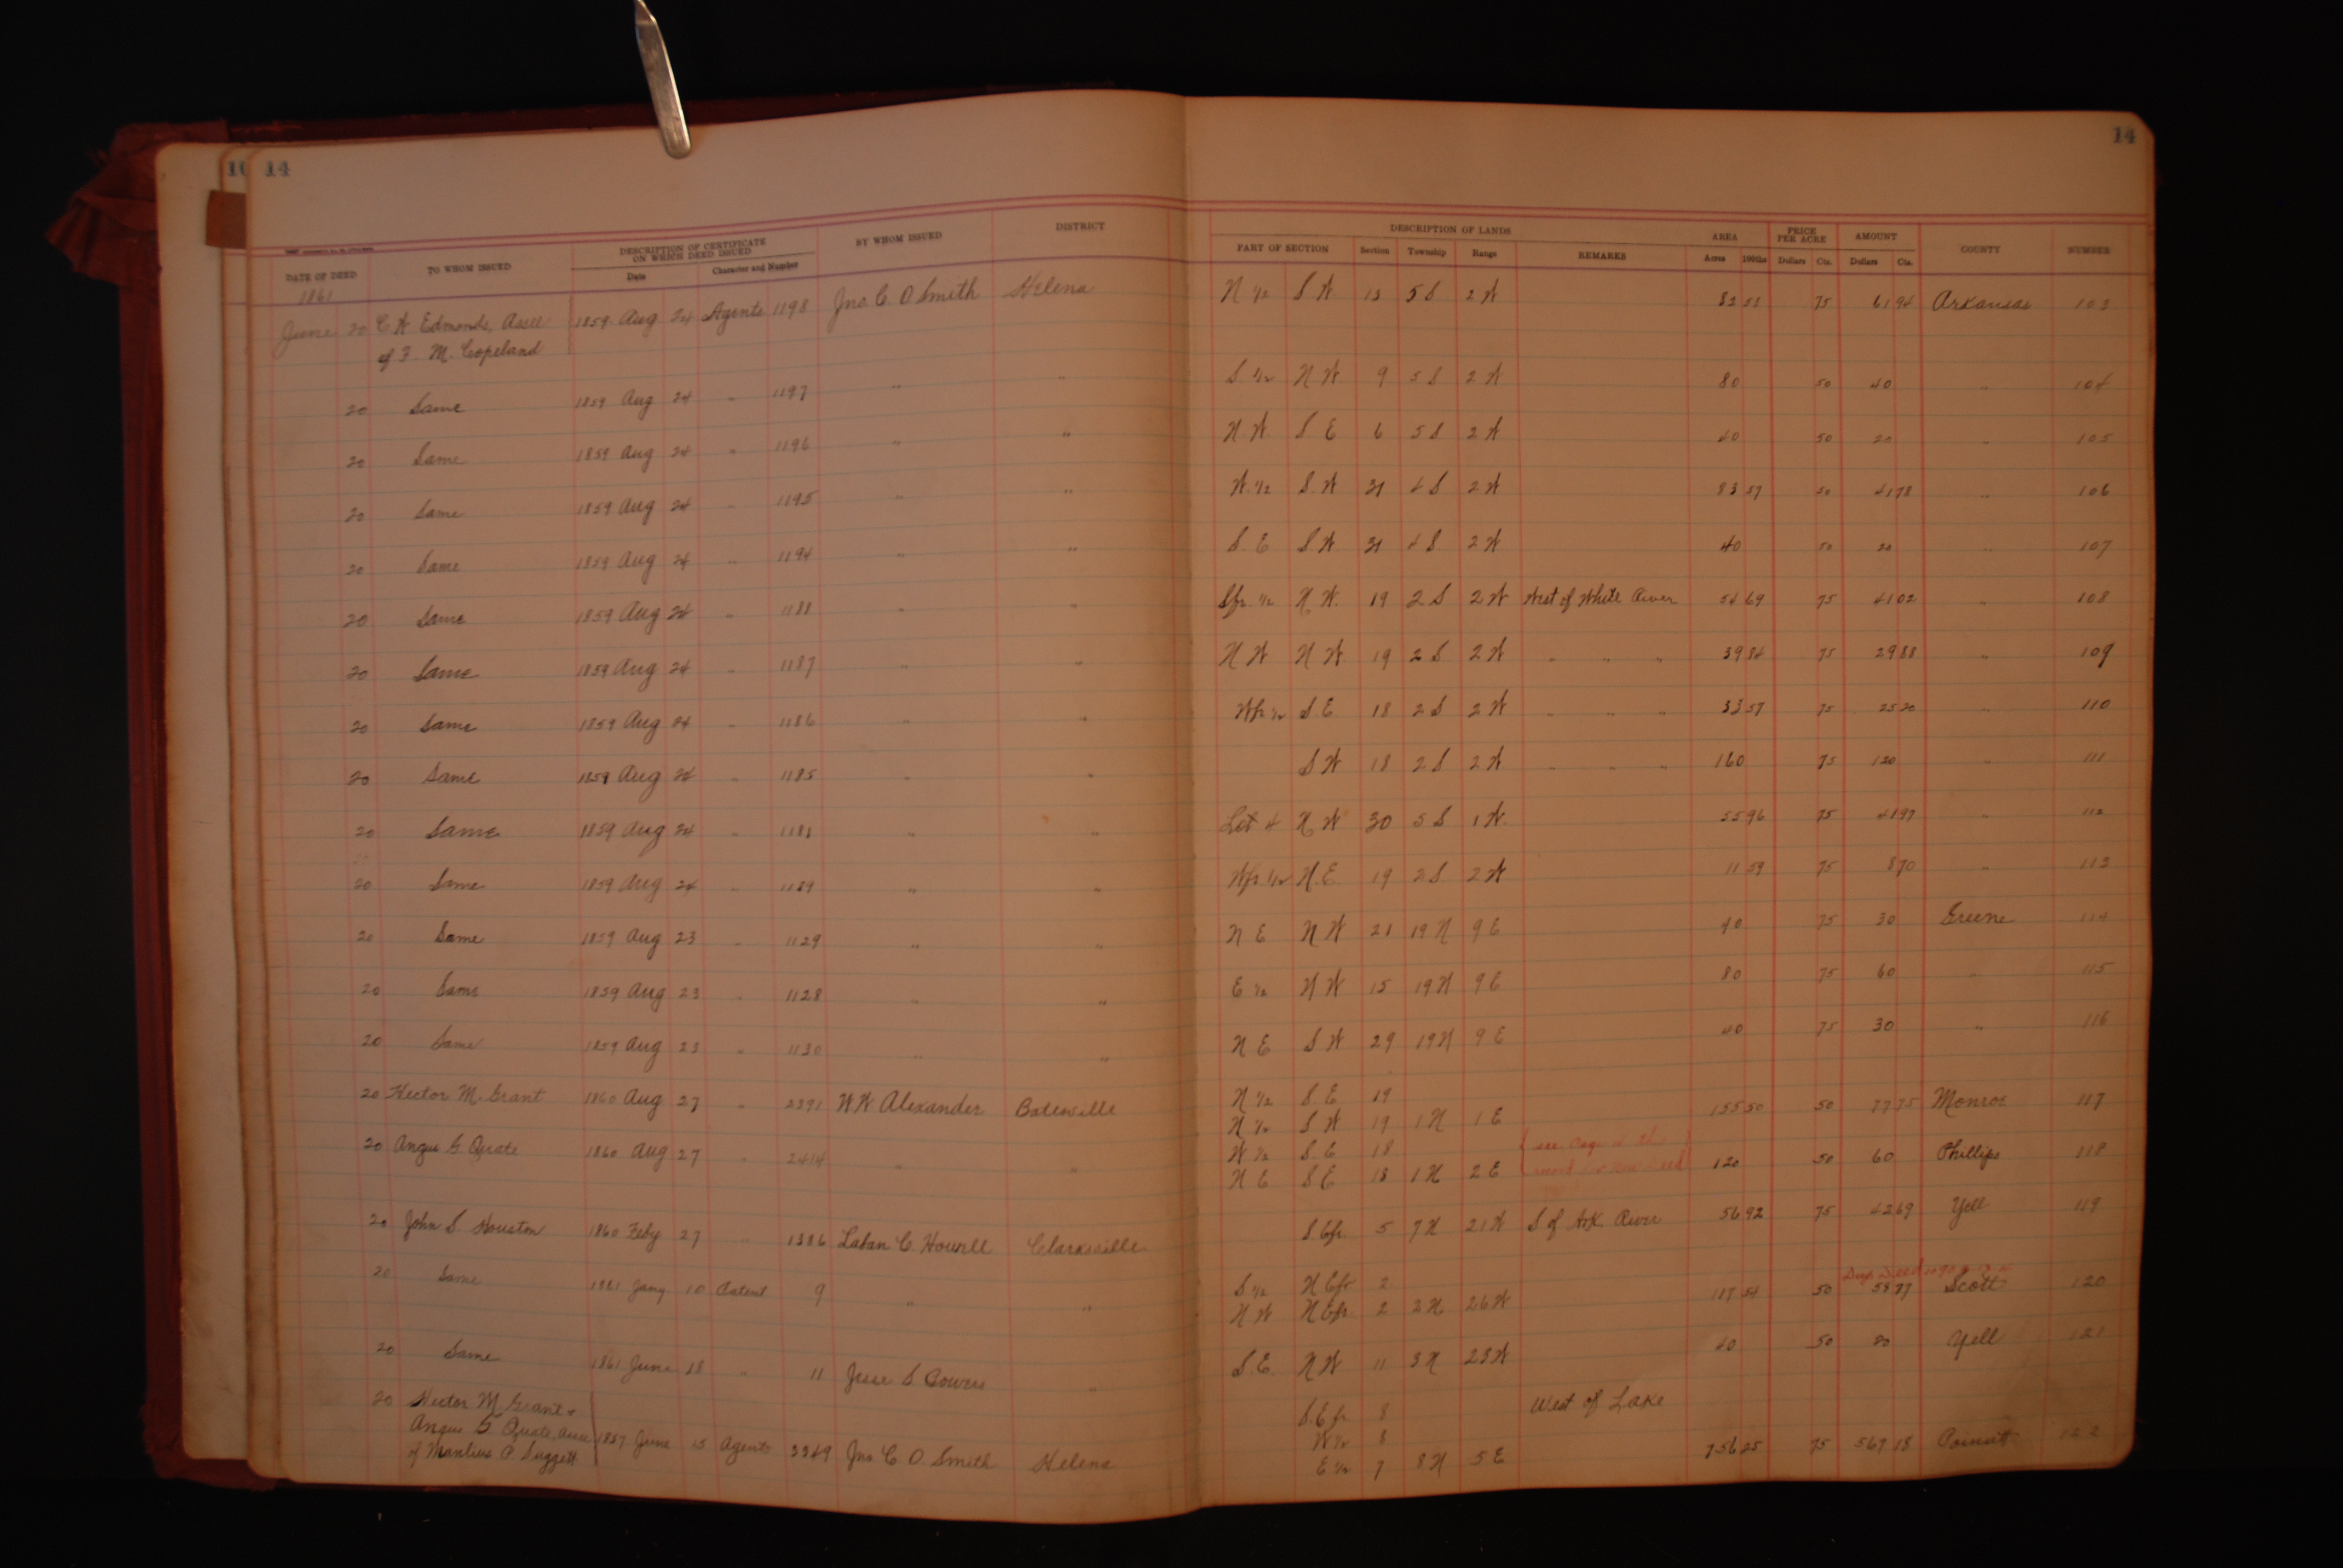 14
14
DATE OF DEED
TO WHOM ISSUED
DESCRIPTION OF CERTIFICATE
ON WHICH DEED ISSUED
Date
Character and Number
BY WHOM ISSUED
DISTRICT
DESCRIPTION OF LANDS
PART OF SECTION
Section
Township
Range
REMARKS
AREA
Acres
100ths
PRICE
PER ACRE
Dollars
Cts.
AMOUNT
Dollars
Cts.
COUNTY
NUMBER
1861
June 20 C W Edmonds, Assee 1859 Aug 24 Agents 1198 Jno. C. O Smith Helena N 1/2 S W 5 S 2 W 75 61 94 Arkansas 103
of F M. Copeland
20 Same 1859 Aug 24 " 1197 " " S 1/2 N W 9 5 S 2 W 80 50 40 " 104
20 Same 1859 Aug 24 " 1196 " " N.W. S E 6 5 S 2 W 40 50 20 " 105
20 Same 1859 Aug 24 " 1195 " " W. 1/2 S. W 31 4 S 2 W 83 57 50 41 78 " 106
20 Same 1859 Aug 24 " 1194 " " S. E S W 31 4 S 2 W 40 50 20 " 107
20 Same 1859 Aug 24 " 1188 " " Sfr. 1/2 N W. 19 2 S 2 W West of White River 54 69 75 41 02 " 108
20 Same 1859 Aug 24 " 1187 " " N W N W. 19 2 S 2 W " " " 39 84 75 29 88 " 109
20 Same 1859 Aug 24 " 1186 " " Wfr 1/2 S. E. 18 2 S 2 W " " " 33 57 75 25 20 " 110
20 Same 1859 Aug 24 " 1185 " " S W 18 2 S 2 W " " " 160 75 120 " 111
20 Same 1859 Aug 24 " " " Lot 4 N W 30 5 S 1 W. 55 96 75 41 97 " 112
20 Same 1859 Aug 24 " 1189 " " Wfr. 1/2 N. E. 19 2 S 2 W 11 59 75 8 70 " 113
20 Same 1859 Aug 23 " 1129 " " N E N W 21 19 N 9 E 40 75 30 Greene 114
20 Same 1859 Aug 23 " 1128 " " E 1/2 N W 15 19 N 9 E 80 75 60 " 115
20 Same 1859 Aug 23 " 1130 " " N E S W 29 19 N 9 E 40 75 30 " 116
20 Hector M. Grant 1860 Aug 27 " 2391 W W Alexander Batesville N 1/2 S. E 19
N 1/2 S W 19 1 N 1 E 155 50 50 77 75 Monroe 117
20 Angus G Quate 1860 Aug 27 " 2414 " " W 1/2 S. E 18
N E S E 18 1 N 2 E 120 50 60 Phillips 118
20 John S. Houston 1860 Feby 27 " 1386 Laban C. Howell Clarksville S. Efr. 5 7 N 21 W S of Ark. River 56 92 75 42 69 Yell 119
20 Same 1861 Jany 10 Patent 9 " " S 1/2 N Efr. 2
N W N Efr. 2 2 N 26 W 117 54 50 58 77 Scott 120
20 Same 1861 June 18 " 11 Jesse S Bowers " S. E. N W 11 3 N 23 W 40 50 20 Yell 121
20 Hector M Grant & S. E fr. 8 West of Lake
Angus G Quate, Assee 1857 June 15 Agents 3349 Jno C O. Smith Helena W 1/2 8
of Manlius P. Suggett E 1/2 7 8 N 5 E 756 25 75 567 18 Poinsett 122